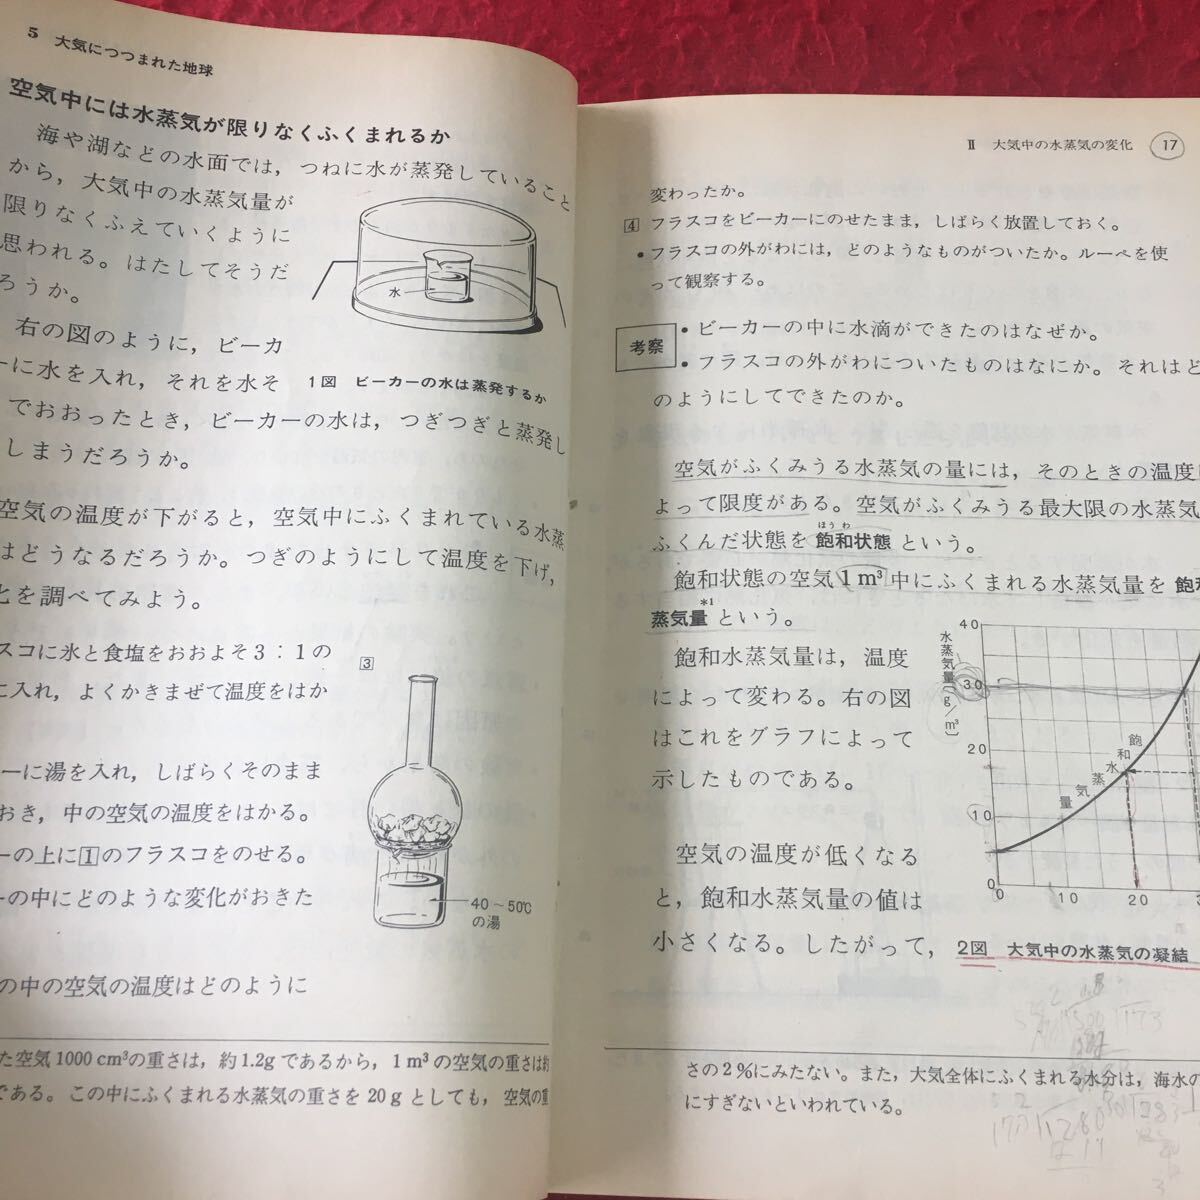 5 大気につつまれた地球
空気中には水蒸気が限りなくふくまれるか
海や湖などの水面では，つねに水が蒸発していること
から，大気中の水蒸気量が
限りなくふえていくように
思われる。はたしてそうだ
ろうか。
水
右の図のように，ビーカ
ーに水を入れ，それを水そ
1図 ビーカーの水は蒸発するか
でおおったとき，ビーカーの水は，つぎつぎと蒸発し
しまうだろうか。
空気の温度が下がると，空気中にふくまれている水蒸
はどうなるだろうか。つぎのようにして温度を下げ，
を調べてみよう。
スコに氷と食塩をおおよそ3：1の
に入れ，よくかきまぜて温度をはか
3
ーに湯を入れ，しばらくそのまま
おき，中の空気の温度をはかる。
ーの上に1のフラスコをのせる。
ーの中にどのような変化がおきた
40～50℃
の湯
の中の空気の温度はどのように
た空気1000 cm³の重さは，約1.2gであるから，1 m³の空気の重さは約
である。この中にふくまれる水蒸気の重さを20gとしても，空気の重
II 大気中の水蒸気の変化 17
変わったか。
4 フラスコをビーカーにのせたまま，しばらく放置しておく。
・フラスコの外がわには，どのようなものがついたか。ルーペを使
って観察する。
考察
・ビーカーの中に水滴ができたのはなぜか。
・フラスコの外がわについたものはなにか。それはど
のようにしてできたのか。
空気がふくみうる水蒸気の量には，そのときの温度に
よって限度がある。空気がふくみうる最大限の水蒸気
ほうわ
ふくんだ状態を飽和状態という。
飽和状態の空気1m³中にふくまれる水蒸気量を飽和
蒸気量*1という。
飽和水蒸気量は，温度
によって変わる。右の図
はこれをグラフによって
示したものである。
水蒸気量〔g/m³〕
40
30
20
10
0
飽和水蒸気量
0 10 20
空気の温度が低くなる
と，飽和水蒸気量の値は
小さくなる。したがって，
2図 大気中の水蒸気の凝結
さの2%にみたない。また，大気全体にふくまれる水分は，海水の
にすぎないといわれている。